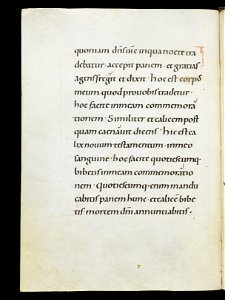 quoniam dñs ihc in qua nocte tra
debatur · accepit panem · et gratias
agens fregit et dixit · hoc est corpus
meum quod pro vobis tradetur ·
hoc facite in meam commemora
tionem · Similiter et calicem post
quam caenavit dicens · hic est ca
lix novum testamentum in meo
sanguine · hoc facite quotiescumq·
bibetis in meam commemoratio
nem · Quotiescumq· enim mandu
cabitis panem hunc · et calicem bibe
tis · mortem dñi annuntiabitis ·